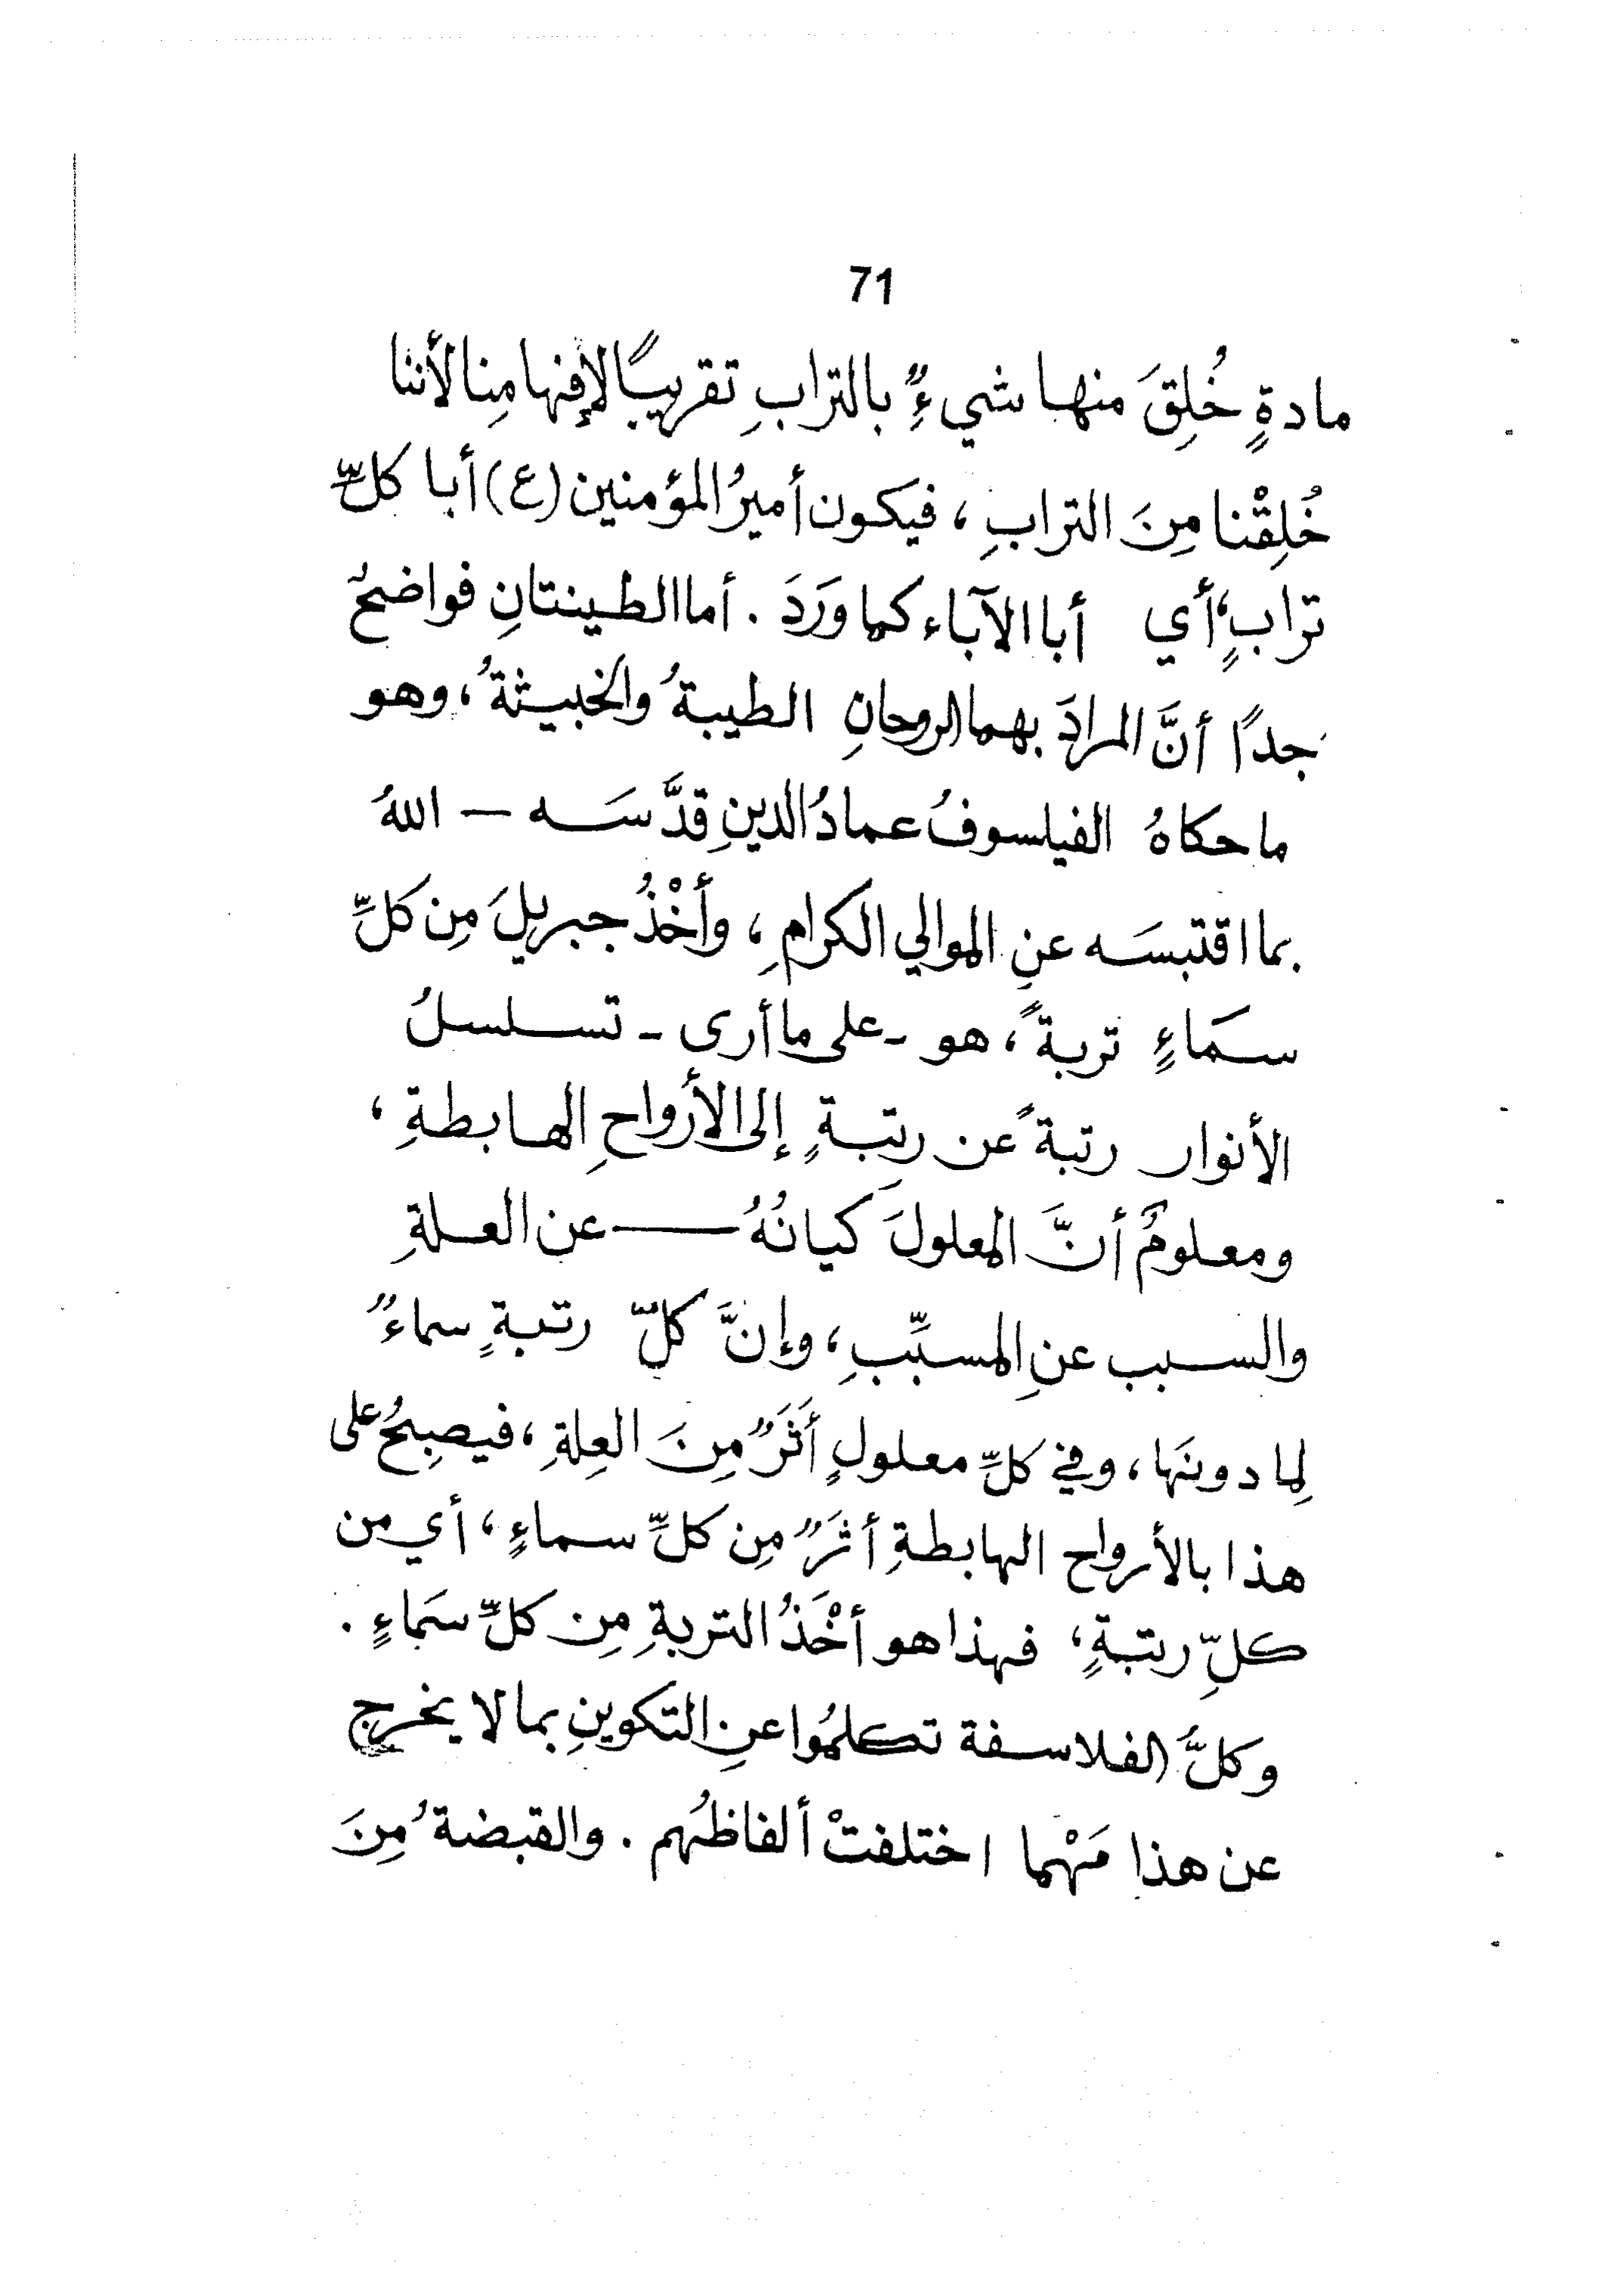 71
مادةٍ خُلِقَ منها شيءٌ بالترابِ تقريبًا لإفهامِنا لأننا
خُلِقْنا مِنَ الترابِ ، فيكون أميرُ المؤمنين (ع) أبا كلِّ
ترابٍ ، أي أبا الآباء كما وَرَدَ . أما الطينتانِ فواضحٌ
جداً أنَّ المرادَ بهما الروحانِ الطيبةُ والخبيثةُ ، وهو
ما حكاهُ الفيلسوفُ عمادُ الدينِ قدَّسَه – اللهُ
بما اقتبسَه عنِ الموالي الكرامِ ، وأخْذُ جبريلَ مِن كلِّ
سَماءٍ تربةً ، هو - على ما أرى - تسلسلُ
الأنوار رتبةً عن رتبةٍ إلى الأرواحِ الهابطةِ ،
ومعلومٌ أنَّ المعلولَ كيانُهُ — عن العلةِ
والسبب عنِ المسبِّبِ ، وإنَّ كلّ رتبةٍ سماءٌ
لِما دونَها ، وفي كلِّ معلولٍ أثَرٌ مِنَ العِلةِ ، فيصبِحُ على
هذا بالأرواح الهابطةِ أثَرٌ مِن كلِّ سماءٍ ، أي من
كلِّ رتبةٍ ، فهذا هو أخْذُ التربةِ مِن كلِّ سَماءٍ .
وكلُّ الفلاسفة تكلمُوا عنِ التكوينِ بما لا يخرج
عن هذا مَهْما اختلفتْ ألفاظُهم . والقبضةُ مِنَ